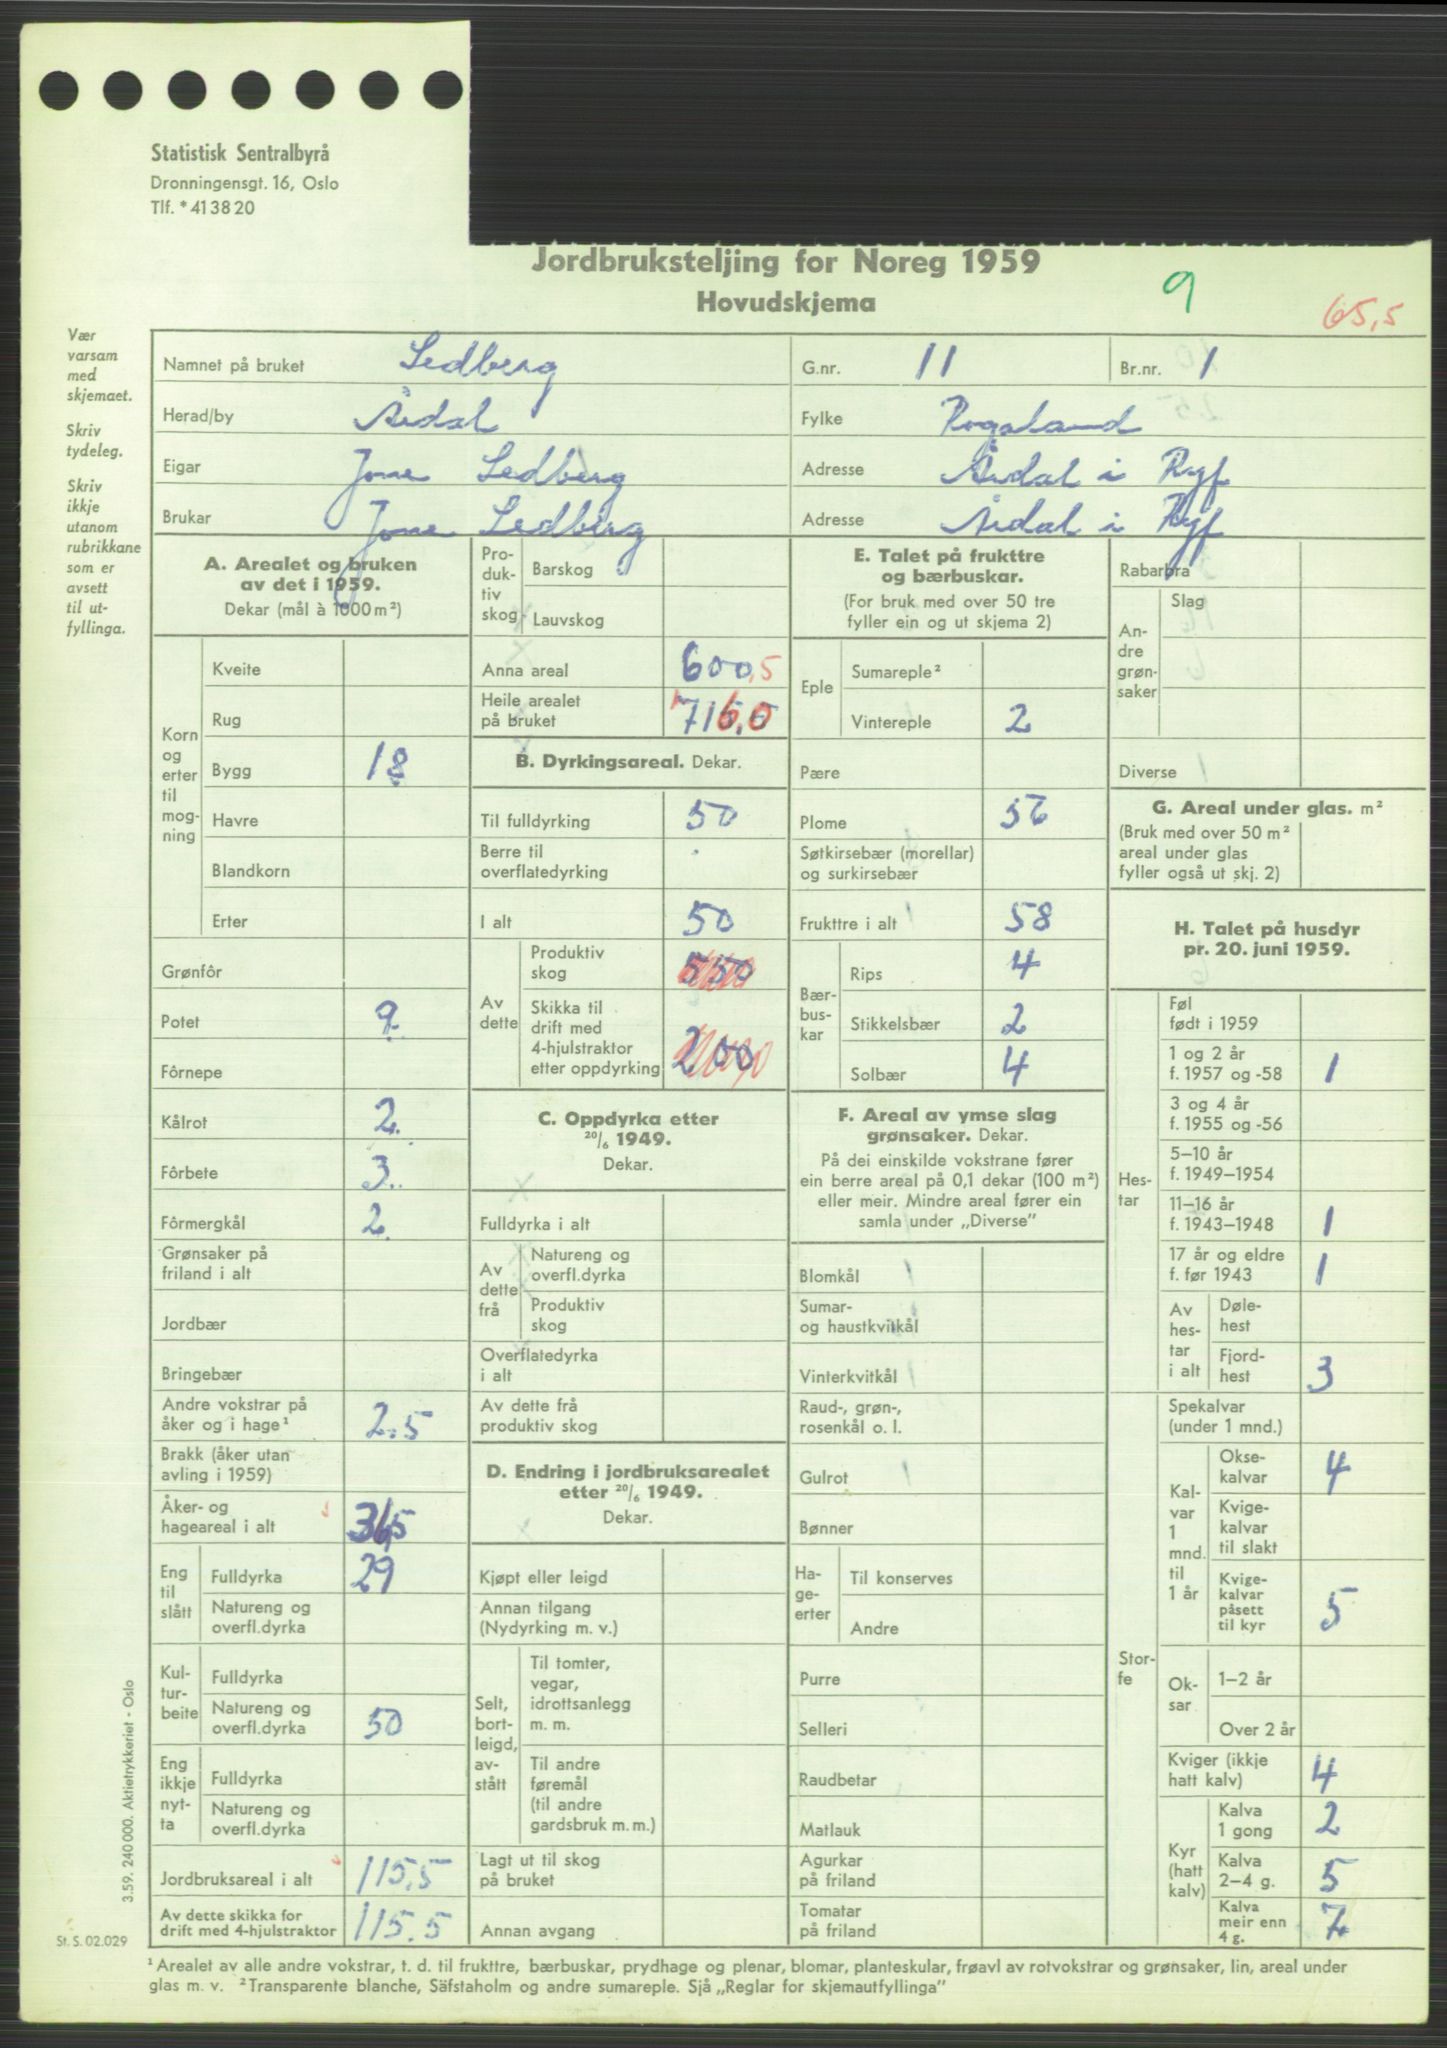 Statistisk Sentralbyrå
Dronningensgt. 16, Oslo
Tlf. *413820
Jordbruksteljing for Noreg 1959
Hovudskjema
9
65,5
Vær
varsam
med
skjemaet.
Skriv
tydeleg.
Skriv
ikkje
utanom
rubrikkane
som er
avsett
til ut-
fyllinga.
Namnet på bruket Ledberg G.nr. 11 Br.nr. 1
Herad/by Årdal Fylke Rogaland
Eigar Jone Ledberg Adresse Årdal i Ryf
Brukar Jone Ledberg Adresse Årdal i Ryf
A. Arealet og bruken
av det i 1959.
Dekar (mål à 1000 m²)
Korn
og
erter
til
mog-
ning
Kveite
Rug
Bygg 18
Havre
Blandkorn
Erter
Grønfôr
Potet 9
Fôrnepe
Kålrot 2
Fôrbete 3
Fôrmergkål 2
Grønsaker på
friland i alt
Jordbær
Bringebær
Andre vokstrar på
åker og i hage¹ 2.5
Brakk (åker utan
avling i 1959)
Åker- og
hageareal i alt 36,5
Eng
til
slått
Fulldyrka 29
Natureng og
overfl.dyrka
Kul-
tur-
beite
Fulldyrka
Natureng og
overfl.dyrka 50
Eng
ikkje
nyt-
ta
Fulldyrka
Natureng og
overfl.dyrka
Jordbruksareal i alt 115.5
Av dette skikka for
drift med 4-hjulstraktor 115.5
Pro-
duk-
tiv
skog
Barskog
Lauvskog
Anna areal 600,5
Heile arealet
på bruket 716,0
B. Dyrkingsareal. Dekar.
Til fulldyrking 50
Berre til
overflatedyrking
I alt 50
Av
dette
Produktiv
skog 550
Skikka til
drift med
4-hjulstraktor
etter oppdyrking 200
C. Oppdyrka etter
20/6 1949.
Dekar.
Fulldyrka i alt
Av
dette
frå
Natureng og
overfl.dyrka
Produktiv
skog
Overflatedyrka
i alt
Av dette frå
produktiv skog
D. Endring i jordbruksarealet
etter 20/6 1949.
Dekar.
Kjøpt eller leigd
Annan tilgang
(Nydyrking m. v.)
Selt,
bort-
leigd,
av-
stått
Til tomter,
vegar,
idrottsanlegg
m. m.
Til andre
føremål
(til andre
gardsbruk m. m.)
Lagt ut til skog
på bruket
Annan avgang
E. Talet på frukttre
og bærbuskar.
(For bruk med over 50 tre
fyller ein og ut skjema 2)
Eple
Sumareple²
Vintereple 2
Pære
Plome 56
Søtkirsebær (morellar)
og surkirsebær
Frukttre i alt 58
Bær-
bus-
kar
Rips 4
Stikkelsbær 2
Solbær 4
F. Areal av ymse slag
grønsaker. Dekar.
På dei einskilde vokstrane fører
ein berre areal på 0,1 dekar (100 m²)
eller meir. Mindre areal fører ein
samla under „Diverse”
Blomkål
Sumar-
og haustkvitkål
Vinterkvitkål
Raud-, grøn-,
rosenkål o. l.
Gulrot
Bønner
Ha-
ge-
erter
Til konserves
Andre
Purre
Selleri
Raudbetar
Matlauk
Agurkar
på friland
Tomatar
på friland
Rabarbra
An-
dre
grøn-
saker
Slag
Diverse
G. Areal under glas. m²
(Bruk med over 50 m²
areal under glas
fyller også ut skj. 2)
H. Talet på husdyr
pr. 20. juni 1959.
Hes-
tar
Føl
født i 1959
1 og 2 år
f. 1957 og -58 1
3 og 4 år
f. 1955 og -56
5–10 år
f. 1949–1954
11–16 år
f. 1943–1948 1
17 år og eldre
f. før 1943 1
Av
hes-
tar
i alt
Døle-
hest
Fjord-
hest 3
Stor-
fe
Spekalvar
(under 1 mnd.)
Kal-
var
1
mnd.
til
1 år
Okse-
kalvar 4
Kvige-
kalvar
til slakt
Kvige-
kalvar
påsett
til kyr 5
Ok-
sar
1–2 år
Over 2 år
Kviger (ikkje
hatt kalv) 4
Kyr
(hatt
kalv)
Kalva
1 gong 2
Kalva
2–4 g. 5
Kalva
meir enn
4 g. 7
3.59. 240 000. Aktietrykkeriet - Oslo
St. S. 02.029
¹ Arealet av alle andre vokstrar, t. d. til frukttre, bærbuskar, prydhage og plenar, blomar, planteskular, frøavl av rotvokstrar og grønsaker, lin, areal under
glas m. v. ² Transparente blanche, Säfstaholm og andre sumareple. Sjå „Reglar for skjemautfyllinga”